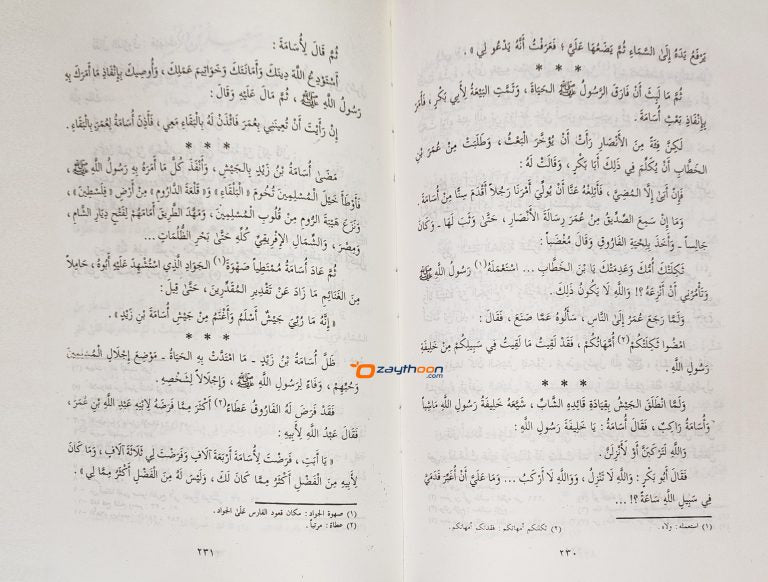 يَرْفَعُ يَدَهُ إِلَى السَّمَاءِ ثُمَّ يَضَعُهَا عَلَيَّ ؛ فَعَرَفْتُ أَنَّهُ يَدْعُو لِي » .
* * *
ثُمَّ مَا لَبِثَ أَنْ فَارَقَ الرَّسُولُ ﷺ الحَيَاةَ ، وَتَمَّتِ البَيْعَةُ لِأَبِي بَكْرٍ ، فَأَمَرَ
بِإِنْفَاذِ بَعْثِ أُسَامَةَ .
لَكِنَّ فِئَةً مِنَ الأَنْصَارِ رَأَتْ أَنْ يُؤَخَّرَ البَعْثُ ، وَطَلَبَتْ مِنْ عُمَرَ بْنِ
الخَطَّابِ أَنْ يُكَلِّمَ فِي ذَلِكَ أَبَا بَكْرٍ ، وَقَالَتْ لَهُ :
فَإِنْ أَبَى إِلَّا المُضِيَّ ، فَأَبْلِغْهُ عَنَّا أَنْ يُوَلِّيَ أَمْرَنَا رَجُلاً أَقْدَمَ سِنًّا مِنْ أُسَامَةَ .
وَمَا إِنْ سَمِعَ الصِّدِّيقُ مِنْ عُمَرَ رِسَالَةَ الأَنْصَارِ ، حَتَّى وَثَبَ لَهَا - وَكَانَ
جَالِساً - وَأَخَذَ بِلِحْيَةِ الفَارُوقِ وَقَالَ مُغْضَباً :
ثَكِلَتْكَ أُمُّكَ وَعَدِمَتْكَ يَا بْنَ الخَطَّابِ ... اسْتَعْمَلَهُ (١) رَسُولُ اللَّهِ ﷺ
وَتَأْمُرُنِي أَنْ أَنْزِعَهُ ؟! وَاللَّهِ لَا يَكُونُ ذَلِكَ .
وَلَمَّا رَجَعَ عُمَرُ إِلَى النَّاسِ ، سَأَلُوهُ عَمَّا صَنَعَ ، فَقَالَ :
امْضُوا ثَكِلَتْكُمْ (٢) أُمَّهَاتُكُمْ ، فَقَدْ لَقِيتُ مَا لَقِيتُ فِي سَبِيلِكُمْ مِنْ خَلِيفَةِ
رَسُولِ اللَّهِ .
* * *
وَلَمَّا انْطَلَقَ الجَيْشُ بِقِيَادَةِ قَائِدِهِ الشَّابِّ ، شَيَّعَهُ خَلِيفَةُ رَسُولِ اللَّهِ مَاشِياً
وَأُسَامَةُ رَاكِبٌ ، فَقَالَ أُسَامَةُ : يَا خَلِيفَةَ رَسُولِ اللَّهِ :
وَاللَّهِ لَتَرْكَبَنَّ أَوْ لَأَنْزِلَنَّ .
فَقَالَ أَبُو بَكْرٍ : وَاللَّهِ لَا تَنْزِلُ ، وَوَاللَّهِ لَا أَرْكَبُ ... وَمَا عَلَيَّ أَنْ أُغَبِّرَ قَدَمَيَّ
فِي سَبِيلِ اللَّهِ سَاعَةً ؟! ...
(١) استعمله : ولاه .
(٢) ثكلتكم أمهاتكم : فقدتكم أمهاتكم .
٢٣٠
ثُمَّ قَالَ لِأُسَامَةَ :
أَسْتَوْدِعُ اللَّهَ دِينَكَ وَأَمَانَتَكَ وَخَوَاتِيمَ عَمَلِكَ ، وَأُوصِيكَ بِإِنْفَاذِ مَا أَمَرَكَ بِهِ
رَسُولُ اللَّهِ ﷺ ، ثُمَّ مَالَ عَلَيْهِ وَقَالَ :
إِنْ رَأَيْتَ أَنْ تُعِينَنِي بِعُمَرَ فَائْذَنْ لَهُ بِالْبَقَاءِ مَعِي ، فَأَذِنَ أُسَامَةُ لِعُمَرَ بِالْبَقَاءِ .
* * *
مَضَى أُسَامَةُ بْنُ زَيْدٍ بِالجَيْشِ ، وَأَنْفَذَ كُلَّ مَا أَمَرَهُ بِهِ رَسُولُ اللَّهِ ﷺ ،
فَأَوْطَأَ خَيْلَ المُسْلِمِينَ تُخُومَ « البَلْقَاءِ » وَ« قَلْعَةَ الدَّارُومِ » مِنْ أَرْضِ « فِلَسْطِينَ » ،
وَنَزَعَ هَيْبَةَ الرُّومِ مِنْ قُلُوبِ المُسْلِمِينَ ، وَمَهَّدَ الطَّرِيقَ أَمَامَهُمْ لِفَتْحِ دِيَارِ الشَّامِ ،
وَمِصْرَ ، وَالشَّمَالِ الإِفْرِيقِيِّ كُلِّهِ حَتَّى بَحْرِ الظُّلُمَاتِ ...
ثُمَّ عَادَ أُسَامَةُ مُمْتَطِياً صَهْوَةَ (١) الجَوَادِ الَّذِي اسْتُشْهِدَ عَلَيْهِ أَبُوهُ ، حَامِلاً
مِنَ الغَنَائِمِ مَا زَادَ عَنْ تَقْدِيرِ المُقَدِّرِينَ ، حَتَّى قِيلَ :
« إِنَّهُ مَا رُئِيَ جَيْشٌ أَسْلَمُ وَأَغْنَمُ مِنْ جَيْشِ أُسَامَةَ بْنِ زَيْدٍ » .
* * *
ظَلَّ أُسَامَةُ بْنُ زَيْدٍ - مَا امْتَدَّتْ بِهِ الحَيَاةُ - مَوْضِعَ إِجْلَالِ المُسْلِمِينَ
وَحُبِّهِمْ ، وَفَاءً لِرَسُولِ اللَّهِ ﷺ ، وَإِجْلَالاً لِشَخْصِهِ .
فَقَدْ فَرَضَ لَهُ الفَارُوقُ عَطَاءً (٢) أَكْثَرَ مِمَّا فَرَضَهُ لِابْنِهِ عَبْدِ اللَّهِ بْنِ عُمَرَ ،
فَقَالَ عَبْدُ اللَّهِ لِأَبِيهِ :
« يَا أَبَتِ ، فَرَضْتَ لِأُسَامَةَ أَرْبَعَةَ آلَافٍ وَفَرَضْتَ لِي ثَلَاثَةَ آلَافٍ ، وَمَا كَانَ
لِأَبِيهِ مِنَ الْفَضْلِ أَكْثَرُ مِمَّا كَانَ لَكَ ، وَلَيْسَ لَهُ مِنَ الفَضْلِ أَكْثَرُ مِمَّا لِي » .
(١) صهوة الجواد : مكان قعود الفارس على الجواد .
(٢) عطاءً : مرتباً .
٢٣١
zaythoon
.com